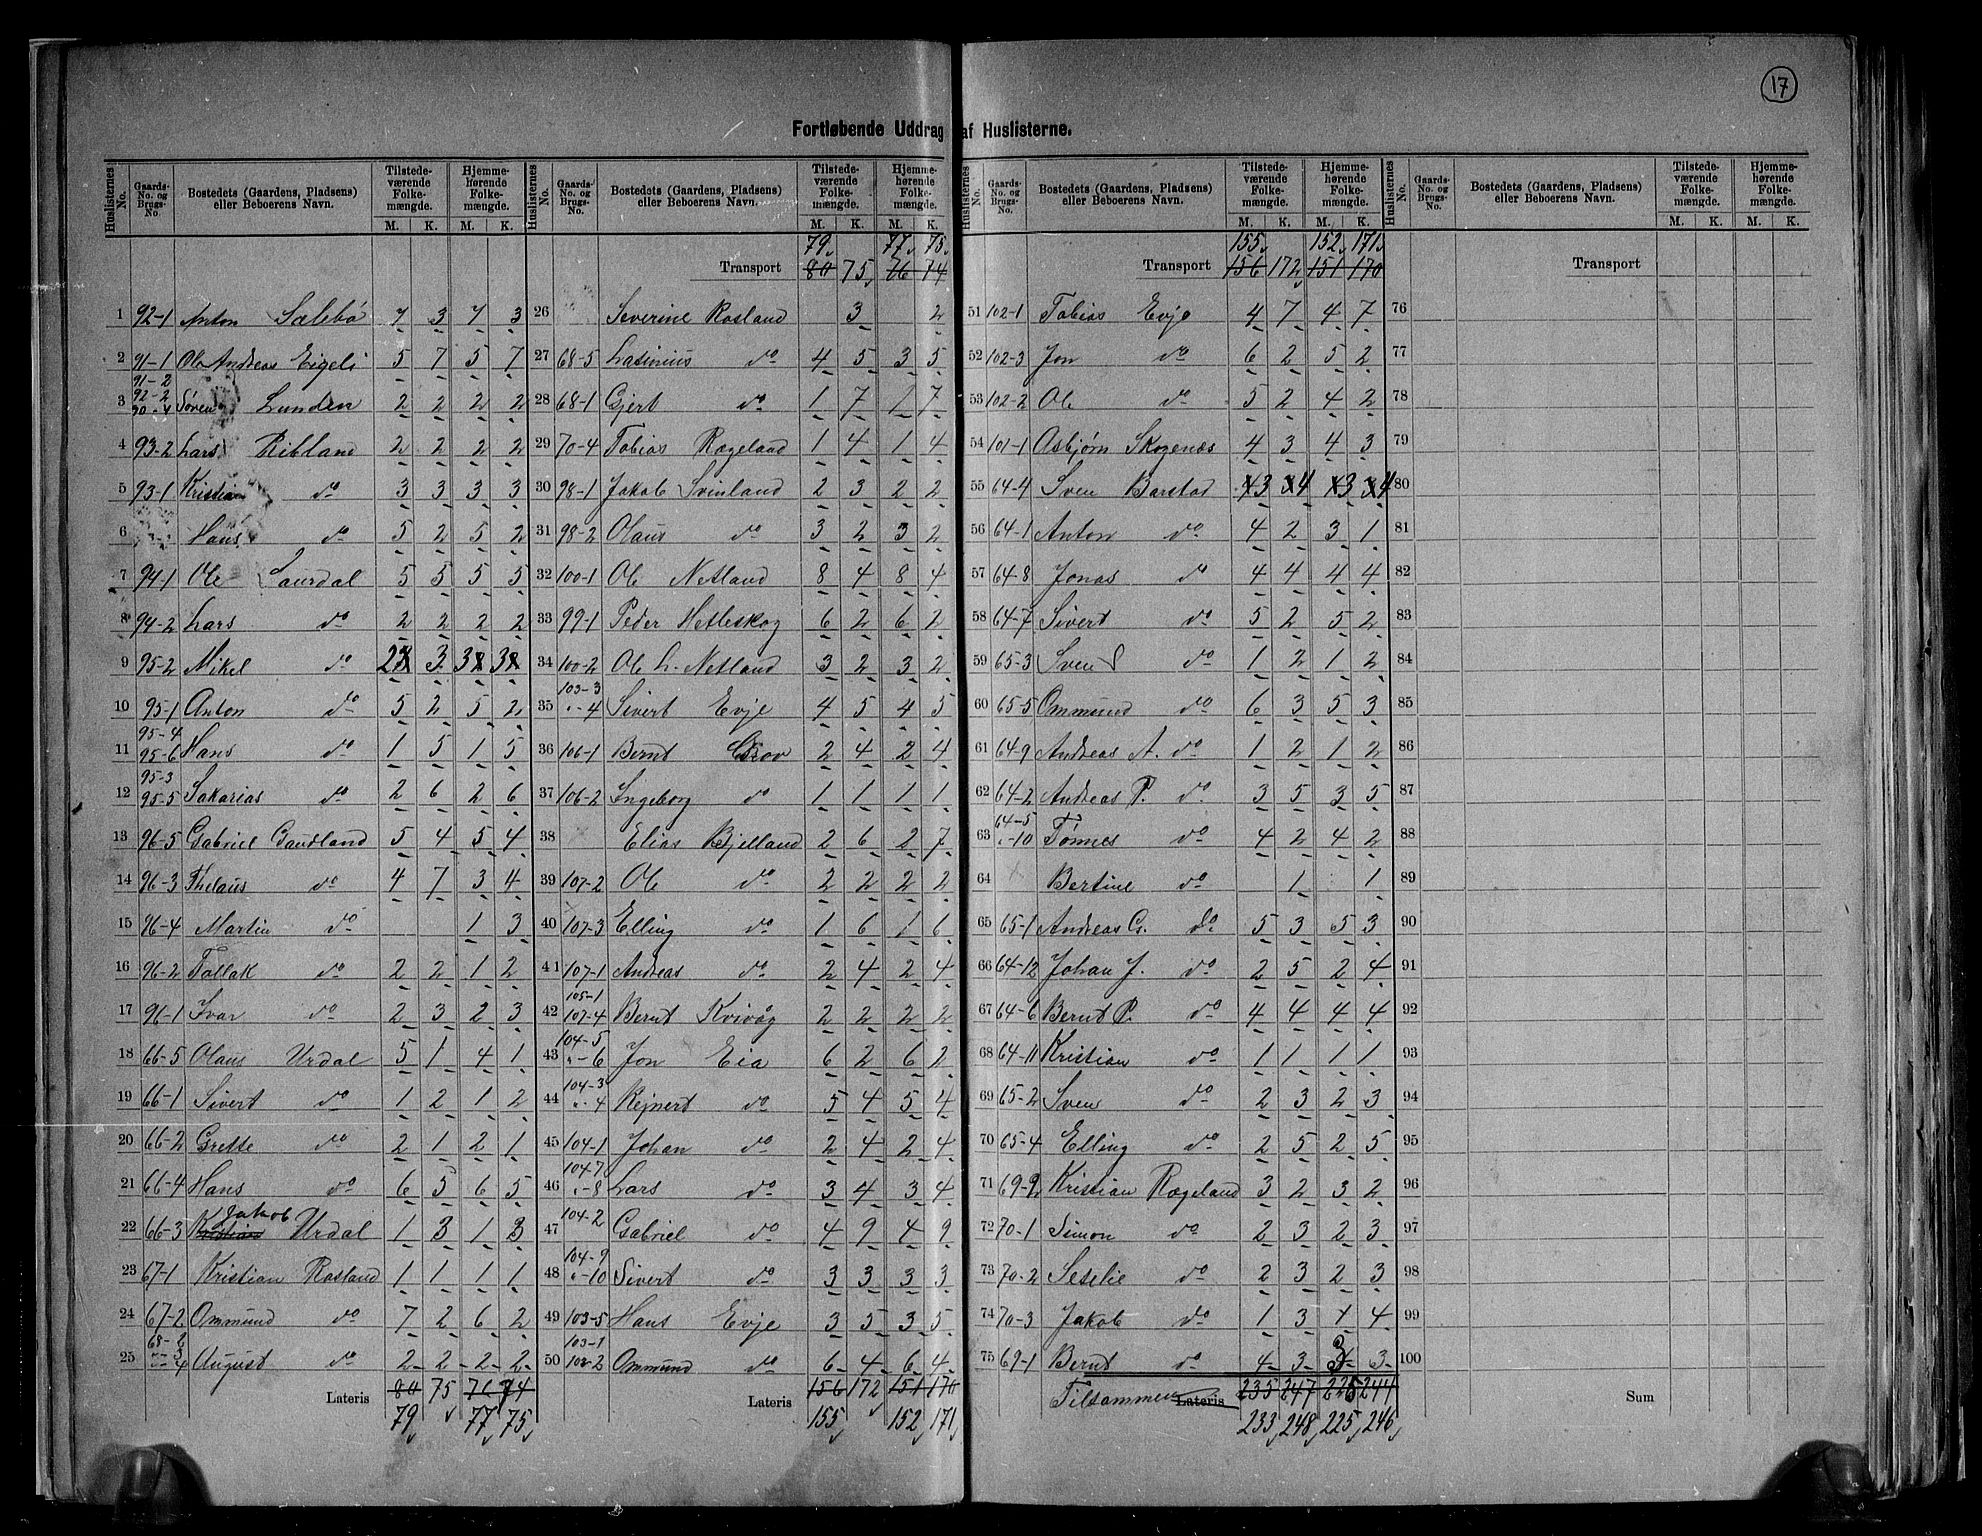 17
Fortløbende Uddrag af Huslisterne.
Huslisternes No. Gaards-No. og Brugs-No. Bostedets (Gaardens, Pladsens) eller Beboerens Navn. Tilstedeværende Folkemængde. M. K. Hjemmehørende Folkemængde. M. K.
1 92-1 Anton Sælebø 7 3 7 3
2 91-1 Ole Andreas Eigeli 5 7 5 7
3 91-2 92-2 90-4 Søren Lunden 2 2 2 2
4 93-2 Lars Ribland 2 2 2 2
5 93-1 Kristian do 3 3 3 3
6 Hans do 5 2 5 2
7 94-1 Ole Laurdal 5 5 5 5
8 94-2 Lars do 2 2 2 2
9 95-2 Mikel do 2 3 3 3
10 95-1 Anton do 5 2 5 2
11 95-4 95-6 Hans do 1 5 1 5
12 95-3 95-5 Sakarias do 2 6 2 6
13 96-5 Gabriel Gaudland 5 4 5 4
14 96-3 Thelaus do 4 7 3 4
15 96-4 Martin do 1 3
16 96-2 Tollak do 2 2 1 2
17 96-1 Ivar do 2 3 2 3
18 66-5 Olaus Urdal 5 1 4 1
19 66-1 Sivert do 1 2 1 2
20 66-2 Grette do 2 1 2 1
21 66-4 Hans do 6 5 6 5
22 66-3 Kristian Jakob Urdal 1 3 1 3
23 67-1 Kristian Rosland 1 1 1 1
24 67-2 Ommund do 7 2 6 2
25 68-2 "-3 "-4 August do 2 2 2 2
Lateris 80 75 76 74
79 77 75
Huslisternes No. Gaards-No. og Brugs-No. Bostedets (Gaardens, Pladsens) eller Beboerens Navn. Tilstedeværende Folkemængde. M. K. Hjemmehørende Folkemængde. M. K.
79 77 75
Transport 80 75 76 74
26 Severine Rosland 3 2
27 68-5 Lasinius do 4 5 3 5
28 68-1 Gjert do 1 7 1 7
29 70-4 Tobias Rægeland 1 4 1 4
30 98-1 Jakob Svinland 2 3 2 2
31 98-2 Olaus do 3 2 3 2
32 100-1 Ole Netland 8 4 8 4
33 99-1 Peder Hetleskog 6 2 6 2
34 100-2 Ole L. Netland 3 2 3 2
35 103-3 "-4 Sivert Evje 4 5 4 5
36 106-1 Bernt Skov 2 4 2 4
37 106-2 Ingeborg do 1 1 1 1
38 Elias Bjelland 2 6 2 7
39 107-2 Ole do 2 2 2 2
40 107-3 Elling do 1 6 1 6
41 107-1 Andreas do 2 4 2 4
42 105-1 107-4 Bernt Kvivåg 2 2 2 2
43 104-5 "-6 Jon Eia 6 2 6 2
44 104-3 "-4 Rejnert do 5 4 5 4
45 104-1 Johan do 2 4 2 4
46 104-7 "-8 Lars do 3 4 3 4
47 104-2 Gabriel do 4 9 4 9
48 104-9 "-10 Sivert do 3 3 3 3
49 103-5 Hans Evje 3 5 3 5
50 103-1 103-2 Ommund do 6 4 6 4
Lateris 156 172 151 170
155 152 171
Huslisternes No. Gaards-No. og Brugs-No. Bostedets (Gaardens, Pladsens) eller Beboerens Navn. Tilstedeværende Folkemængde. M. K. Hjemmehørende Folkemængde. M. K.
155 152 171
Transport 156 172 151 170
51 102-1 Tobias Evje 4 7 4 7
52 102-3 Jon do 6 2 5 2
53 102-2 Ole do 5 2 4 2
54 101-1 Asbjørn Skogenæs 4 3 4 3
55 64-4 Sven Barstad 3 4 3 4
56 64-1 Anton do 4 2 3 1
57 64-8 Jonas do 4 4 4 4
58 64-7 Sivert do 5 2 5 2
59 65-3 Sven S do 1 2 1 2
60 65-5 Ommund do 6 3 5 3
61 64-9 Andreas A. do 1 2 1 2
62 64-2 Andreas P. do 3 5 3 5
63 64-5 "-10 Tønnes do 4 2 4 2
64 Bertine do 1 1
65 65-1 Andreas G. do 5 3 5 3
66 64-12 Johan J. do 2 5 2 4
67 64-6 Bernt P. do 4 4 4 4
68 64-11 Kristian do 1 1 1 1
69 65-2 Sven do 2 3 2 3
70 65-4 Elling do 2 5 2 5
71 69-2 Kristian Rægeland 3 2 3 2
72 70-1 Simon do 2 3 2 3
73 70-2 Setelie do 2 3 2 3
74 70-3 Jakob do 1 3 1 4
75 69-1 Bernt do 4 3 3 3
Tilsammen Lateris 235 247 226 244
233 248 225 246
Huslisternes No. Gaards-No. og Brugs-No. Bostedets (Gaardens, Pladsens) eller Beboerens Navn. Tilstedeværende Folkemængde. M. K. Hjemmehørende Folkemængde. M. K.
Transport
76
77
78
79
80
81
82
83
84
85
86
87
88
89
90
91
92
93
94
95
96
97
98
99
100
Sum